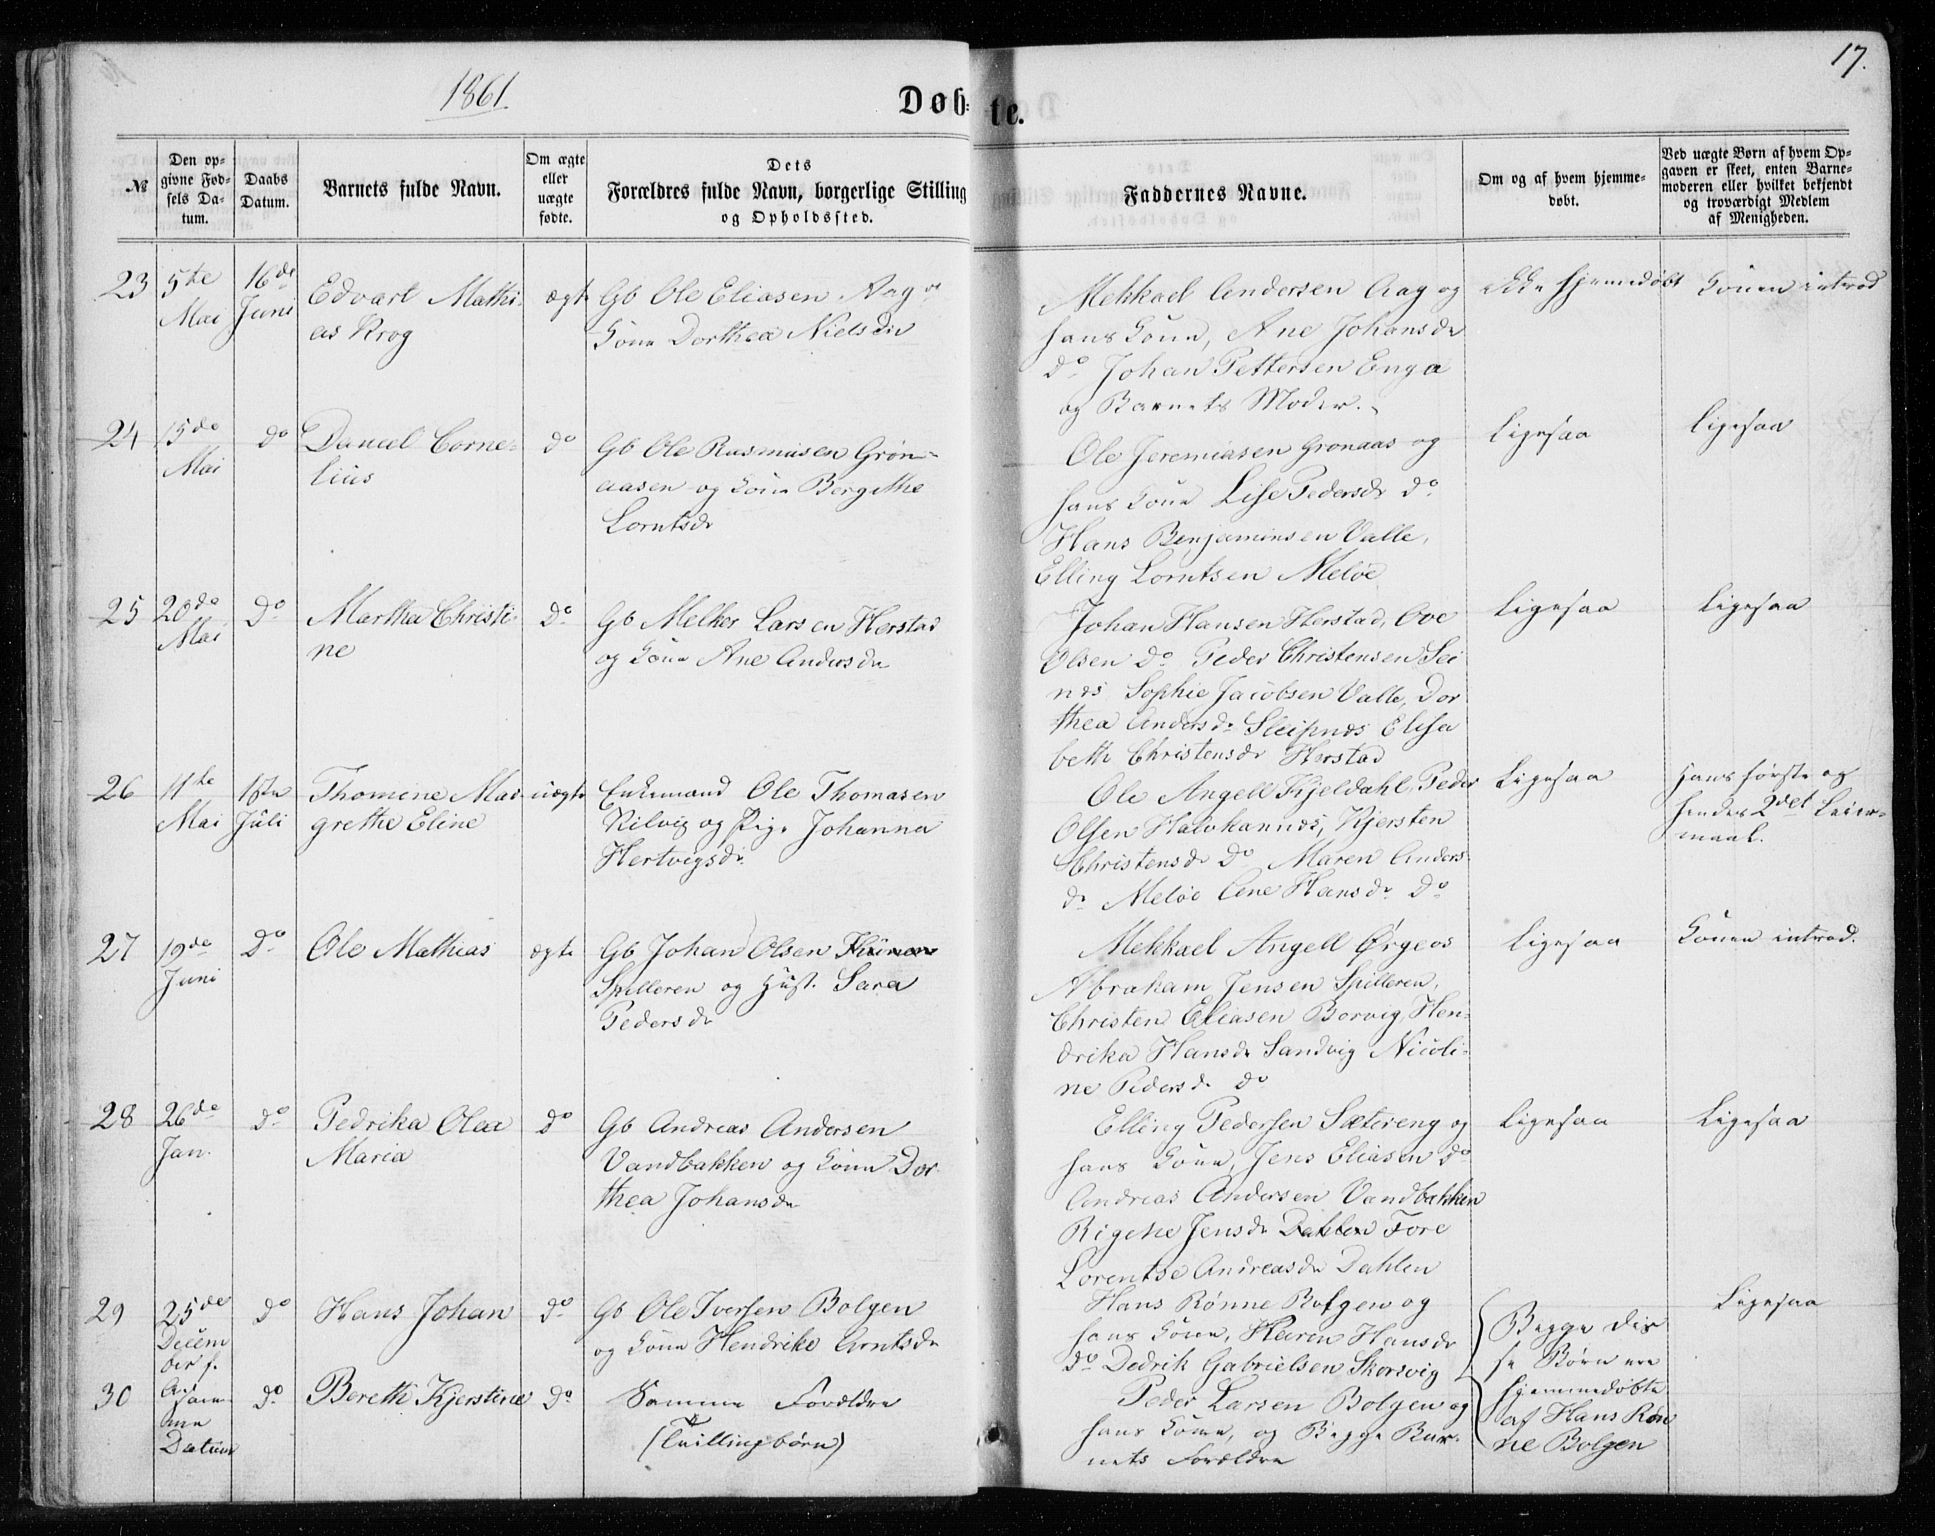 17.
1861.
Døb-
te.
№
Den op-
givne Fød-
sels Da-
tum.
Daabs
Datum.
Barnets fulde Navn.
Om ægte
eller
uægte
fødte.
Dets
Forældres fulde Navn, borgerlige Stilling
og Opholdssted.
Faddernes Navne.
Om og af hvem hjemme-
døbt.
Ved uægte Børn af hvem Op-
gaven er skeet, enten Barne-
moderen eller hvilket bekjendt
og troværdigt Medlem
af Menigheden.
23
5te
Mai
16de
Juni
Edvart Mathi-
as Krog
ægte
Gb Ole Eliasen Aag og
Kone Dorthea Nielsdr
Mekkael Andersen Aag og
hans Kone, Ane Johansdr
do Johan Pettersen Enga
og Barnets Moder.
Ikke hjemmedøbt
Konen introd
24
15de
Mai
do
Daniel Corne-
lius
do
Gb Ole Rasmusen Grøn-
aasen og Kone Bergithe
Lorntsdr
Ole Jeremiasen Grønaas og
hans Kone Lise Pedersdr do
Hans Benjaminsen Valle,
Elling Lorntsen Meløe
Ligesaa
Ligesaa
25
20de
Mai
Do
Martha Christi-
ne
Do
Gb Melker Larsen Herstad
og Kone Ane Andersdr
Johan Hansen Herstad, Ove
Olsen do Peder Christensen Sei
nes Sophie Jacobsen Valle, Dor
thea Andersdr Sleipnes Elisa
beth Christensdr Herstad
Ligesaa
Ligesaa
26
11te
Mai
1ste
Juli
Thomine Mar-
grethe Eline
uægte
Enkemand Ole Thomasen
Kilvig og Pige Johanna
Hertvigsdr
Ole Angell Kjeldahl, Peder
Olsen Halvkannes, Kjersten
Christensdr do Maren Anders-
dr Meløe Ane Hansdr do
Ligesaa
Hans første og
hendes 2det Leier-
maal.
27
19de
Juni
Do
Ole Mathias
ægte
Gb Johan Olsen
Spilleren og Hust. Sara
Pedersdr
Mekkael Angell Ørgeos
Abraham Jensen Spilleren,
Christen Eliasen Borvig, Hen-
drika Hansdr Sandvig Nicoli-
ne Pedersdr do
Ligesaa
Konen introd.
28
26de
Jan.
do
Pedrika Olea
Maria
do
Gb Andreas Andersen
Vandbakken og Kone Dor-
thea Johansdr
Elling Pedersen Sætereng og
hans Kone, Jens Eliasen do
Andreas Andersen Vandbakken
Jensdr Dahlen Fore
Lorentse Andreasdr Dahlen
Ligesaa
Ligesaa
29
25de
Decem
ber f.
A.
do
Hans Johan
do
Gb Ole Iversen Bolgen
og Kone Hendrike Arntsdr
Hans Rønne Bolgen og
hans Kone, Karen Hansdr
do Dedrik Gabrielsen Skorsvig
Begge dis
se Børn ere
hjemmedøbte
af Hans Røn
ne Bolgen
Ligesaa
30
sam-
me
Datum
do
Bereth Kjerstine
do
Samme Forældre
(Tvillingbørn)
Peder Larsen Bolgen og
hans Kone, og Begge Bar-
nets Forældre